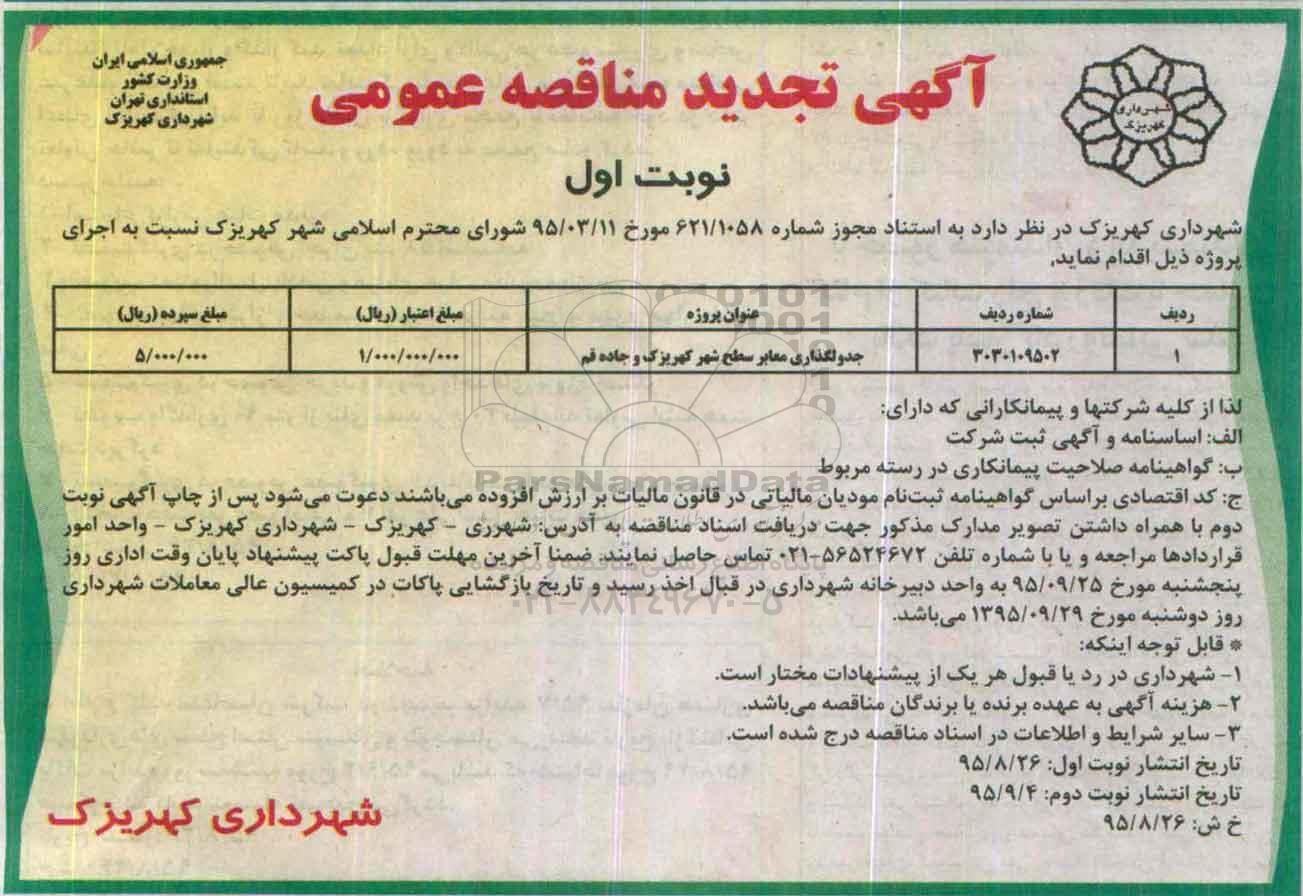 جمهوری اسلامی ایران
وزارت کشور
استانداری تهران
شهرداری کهریزک
شهرداری
کهریزک
آگهی تجدید مناقصه عمومی
نوبت اول
شهرداری کهریزک در نظر دارد به استناد مجوز شماره ۶۲۱/۱۰۵۸ مورخ ۹۵/۰۳/۱۱ شورای محترم اسلامی شهر کهریزک نسبت به اجرای
پروژه ذیل اقدام نماید.
ردیف شماره ردیف عنوان پروژه مبلغ اعتبار (ریال) مبلغ سپرده (ریال)
۱ ۳۰۳۰۱۰۹۵۰۲ جدولگذاری معابر سطح شهر کهریزک و جاده قم ۱/۰۰۰/۰۰۰/۰۰۰ ۵/۰۰۰/۰۰۰
لذا از کلیه شرکتها و پیمانکارانی که دارای:
الف: اساسنامه و آگهی ثبت شرکت
ب: گواهینامه صلاحیت پیمانکاری در رسته مربوط
ParsNamadData
ج: کد اقتصادی براساس گواهینامه ثبت‌نام مودیان مالیاتی در قانون مالیات بر ارزش افزوده می‌باشند دعوت می‌شود پس از چاپ آگهی نوبت
دوم با همراه داشتن تصویر مدارک مذکور جهت دریافت اسناد مناقصه به آدرس: شهرری - کهریزک - شهرداری کهریزک - واحد امور
قراردادها مراجعه و یا با شماره تلفن ۵۶۵۲۴۶۷۲-۰۲۱ تماس حاصل نمایند. ضمنا آخرین مهلت قبول پاکت پیشنهاد پایان وقت اداری روز
پنجشنبه مورخ ۹۵/۰۹/۲۵ به واحد دبیرخانه شهرداری در قبال اخذ رسید و تاریخ بازگشایی پاکات در کمیسیون عالی معاملات شهرداری
۰۲۱-۸۸۳۴۹۶۷۰-۵
روز دوشنبه مورخ ۱۳۹۵/۰۹/۲۹ می‌باشد.
* قابل توجه اینکه:
۱- شهرداری در رد یا قبول هر یک از پیشنهادات مختار است.
۲- هزینه آگهی به عهده برنده یا برندگان مناقصه می‌باشد.
۳- سایر شرایط و اطلاعات در اسناد مناقصه درج شده است.
تاریخ انتشار نوبت اول: ۹۵/۸/۲۶
تاریخ انتشار نوبت دوم: ۹۵/۹/۴
خ ش: ۹۵/۸/۲۶
شهرداری کهریزک